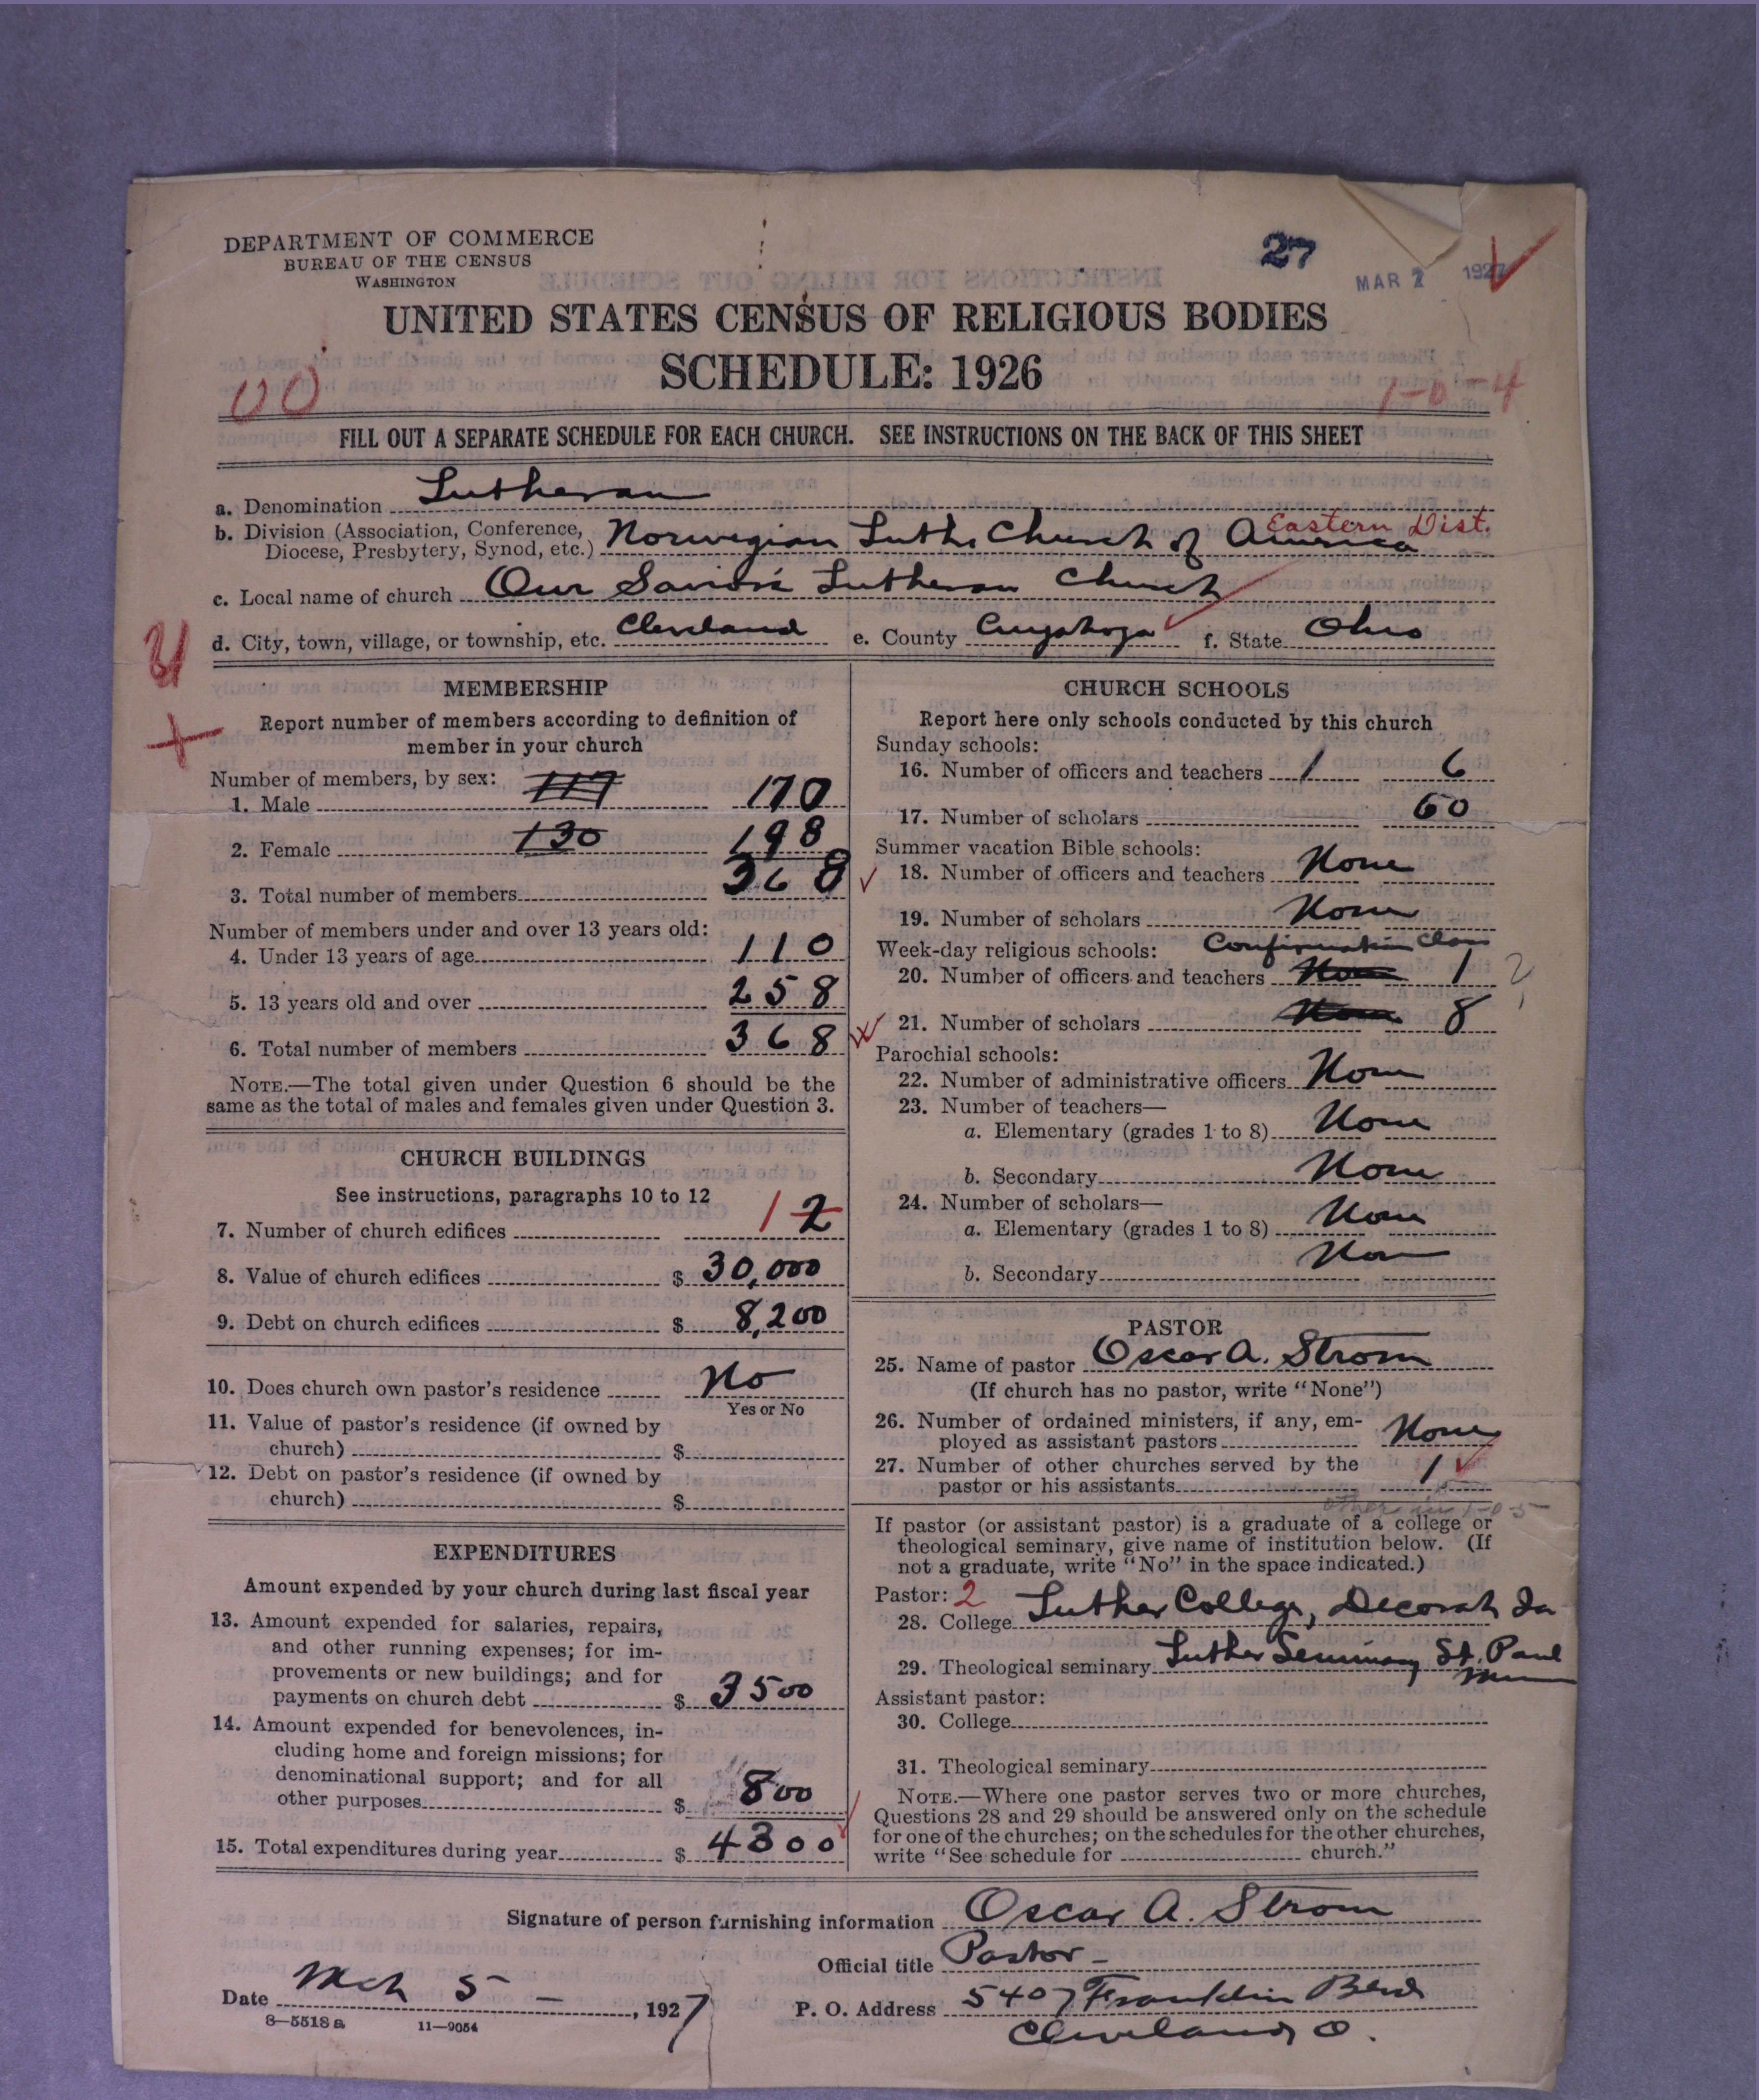 DEPARTMENT OF COMMERCE
BUREAU OF THE CENSUS
WASHINGTON
27
MAR 1927
UNITED STATES CENSUS OF RELIGIOUS BODIES
SCHEDULE: 1926
00
1-0-4
FILL OUT A SEPARATE SCHEDULE FOR EACH CHURCH. SEE INSTRUCTIONS ON THE BACK OF THIS SHEET
a. Denomination Lutheran
b. Division (Association, Conference, Diocese, Presbytery, Synod, etc.) Norwegian Luth. Church of America Eastern Dist.
c. Local name of church Our Saviors Lutheran Church
d. City, town, village, or township, etc. Cleveland e. County Cuyahoga f. State Ohio
MEMBERSHIP
Report number of members according to definition of
member in your church
Number of members, by sex:
1. Male 117 170
2. Female 130 198
3. Total number of members 368
Number of members under and over 13 years old:
4. Under 13 years of age 110
5. 13 years old and over 258
6. Total number of members 368
NOTE.—The total given under Question 6 should be the
same as the total of males and females given under Question 3.
CHURCH BUILDINGS
See instructions, paragraphs 10 to 12
7. Number of church edifices 1 2
8. Value of church edifices $ 30,000
9. Debt on church edifices $ 8,200
10. Does church own pastor's residence No
Yes or No
11. Value of pastor's residence (if owned by
church) $
12. Debt on pastor's residence (if owned by
church) $
EXPENDITURES
Amount expended by your church during last fiscal year
13. Amount expended for salaries, repairs,
and other running expenses; for im-
provements or new buildings; and for
payments on church debt $ 3500
14. Amount expended for benevolences, in-
cluding home and foreign missions; for
denominational support; and for all
other purposes $ 800
15. Total expenditures during year $ 4300
CHURCH SCHOOLS
Report here only schools conducted by this church
Sunday schools:
16. Number of officers and teachers 1 6
17. Number of scholars 60
Summer vacation Bible schools:
18. Number of officers and teachers None
19. Number of scholars None
Week-day religious schools: Confirmation Class
20. Number of officers and teachers None 1 ?
21. Number of scholars None 8
Parochial schools:
22. Number of administrative officers None
23. Number of teachers—
a. Elementary (grades 1 to 8) None
b. Secondary None
24. Number of scholars—
a. Elementary (grades 1 to 8) None
b. Secondary Non
PASTOR
25. Name of pastor Oscar A. Strom
(If church has no pastor, write "None")
26. Number of ordained ministers, if any, em-
ployed as assistant pastors None
27. Number of other churches served by the
pastor or his assistants 1
other 1-0-5
If pastor (or assistant pastor) is a graduate of a college or
theological seminary, give name of institution below. (If
not a graduate, write "No" in the space indicated.)
Pastor: 2
28. College Luther College, Decorah Ia
29. Theological seminary Luther Seminary St. Paul
Minn
Assistant pastor:
30. College
31. Theological seminary
NOTE.—Where one pastor serves two or more churches,
Questions 28 and 29 should be answered only on the schedule
for one of the churches; on the schedules for the other churches,
write "See schedule for church."
Signature of person furnishing information Oscar A. Strom
Official title Pastor
Date Mch 5 , 1927 P. O. Address 5407 Franklin Blvd
Cleveland O.
8—5518 a 11—9054